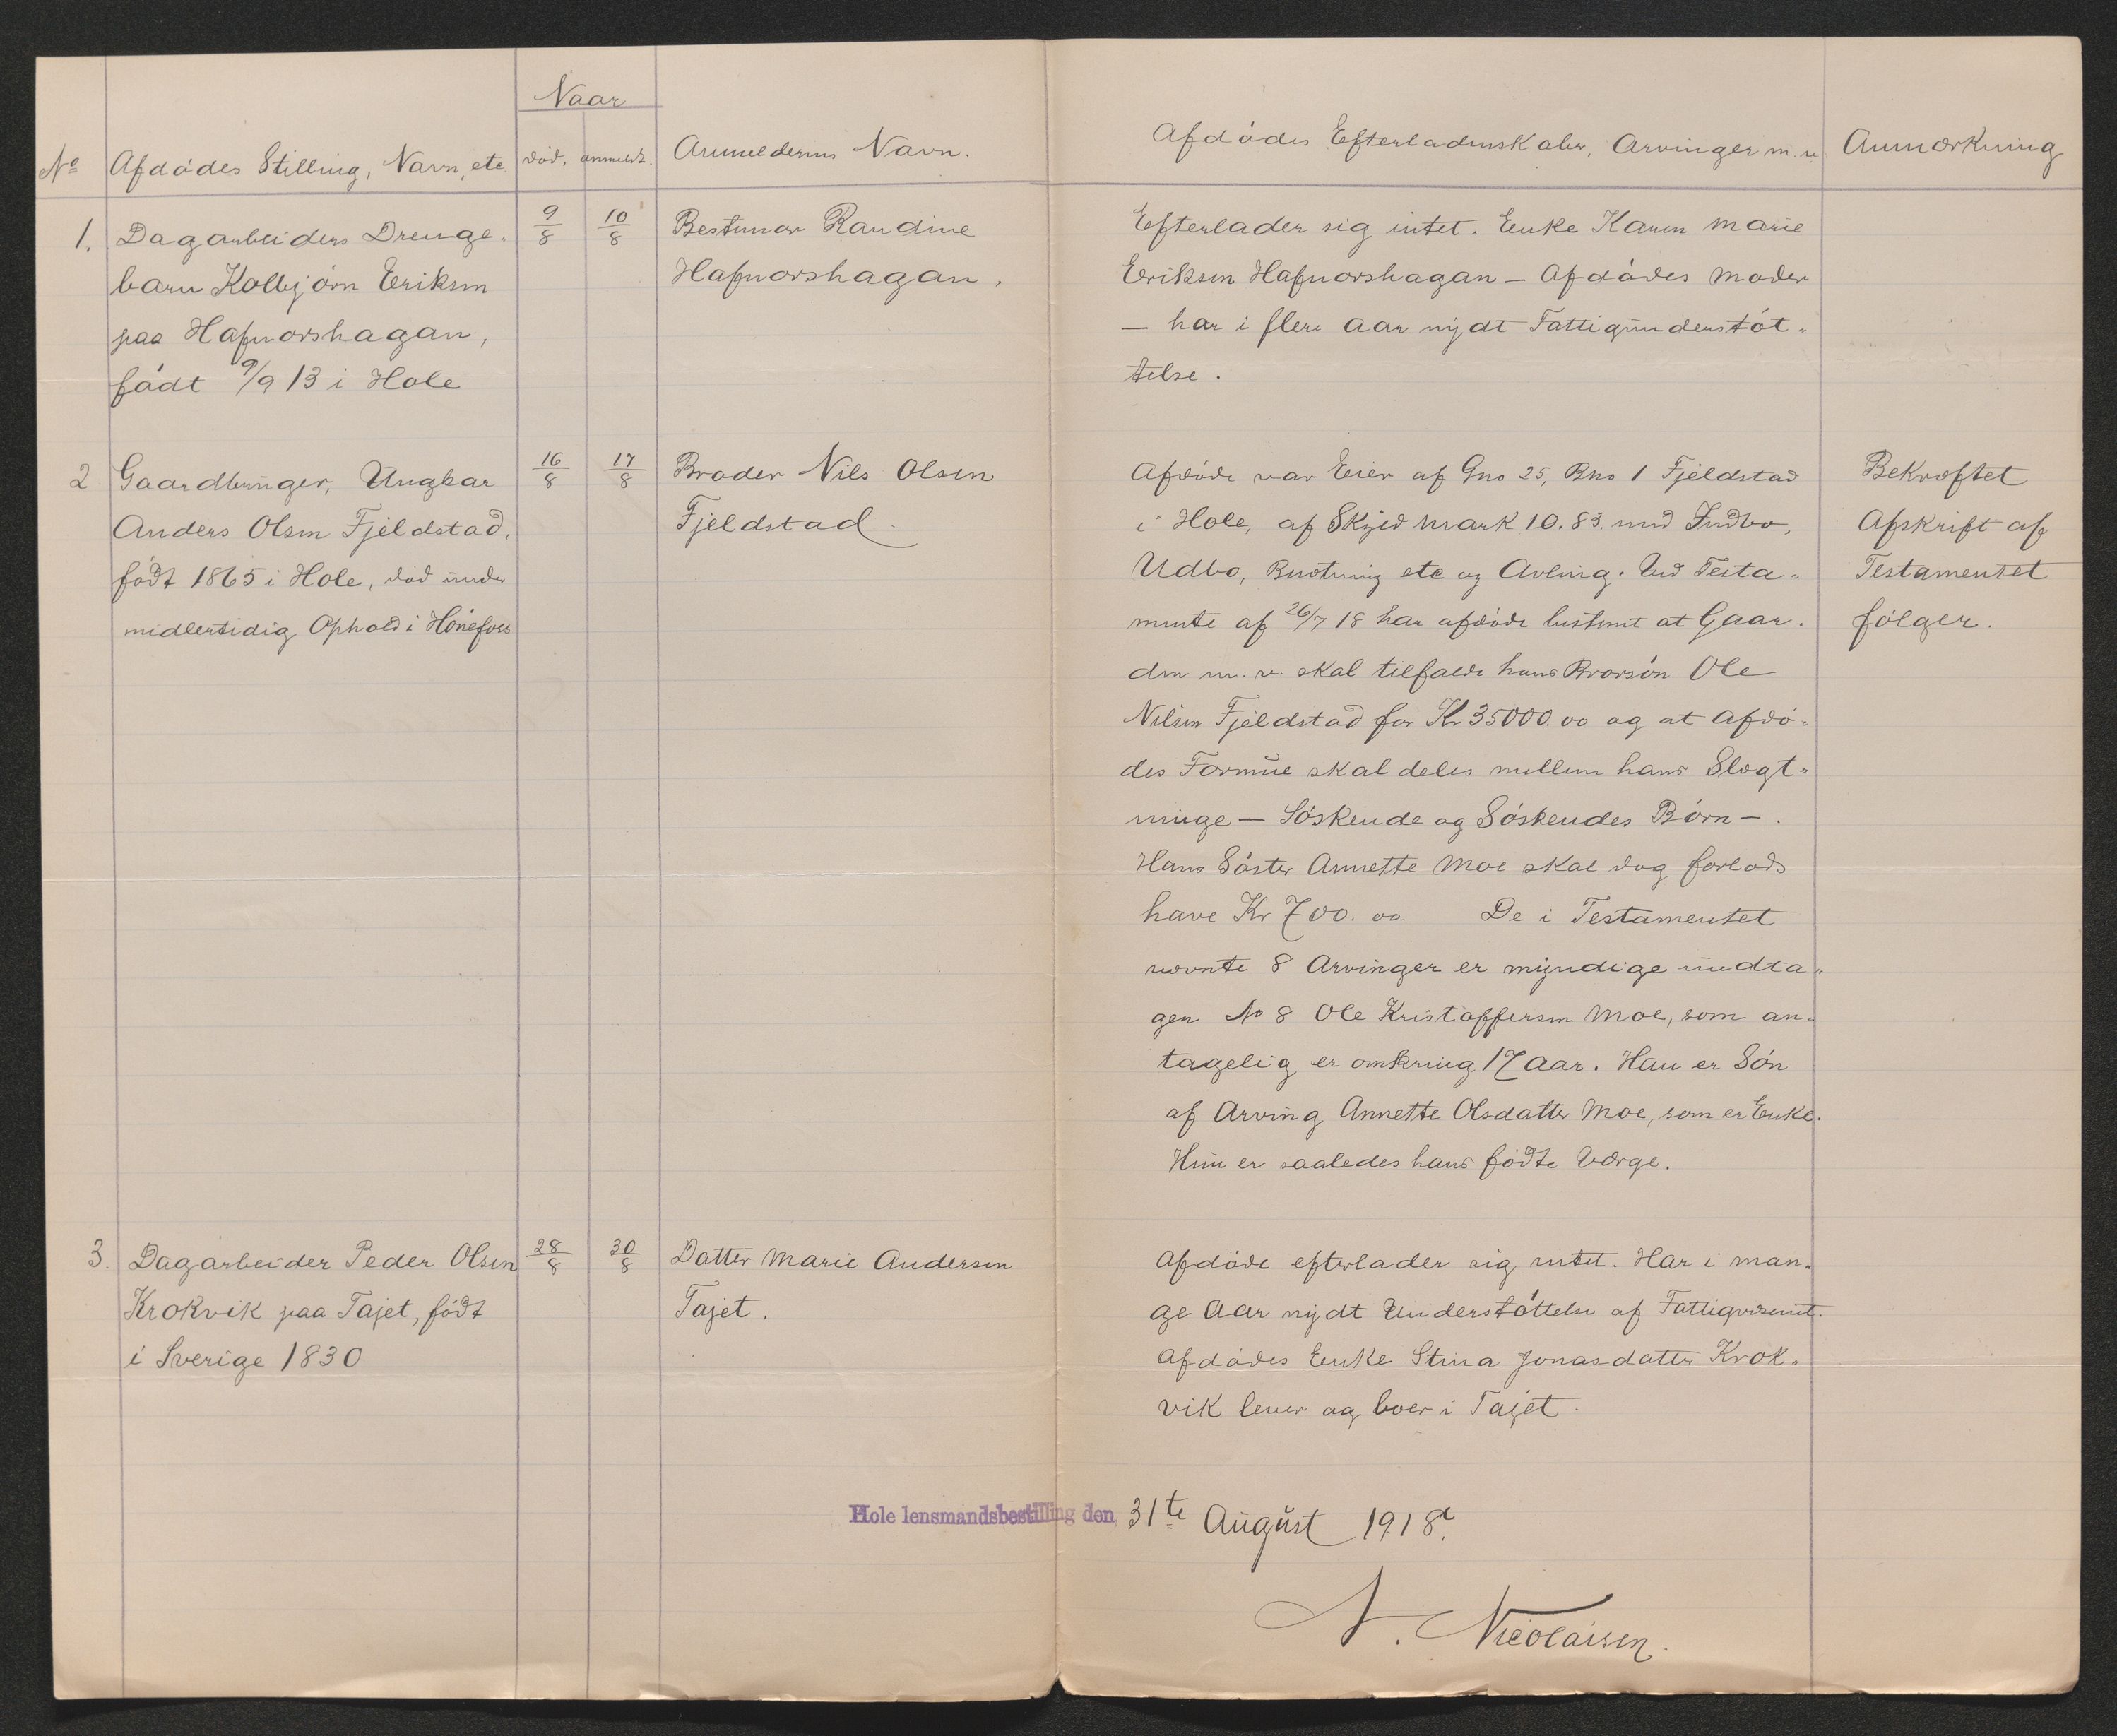 Naar
No Afdødes Stilling, Navn, etc. død. anmeldt. Anmelderens Navn. Afdødes Efterladenskaber, Arvinger m. v. Anmærkning
1. Dagarbeiders Drenge-
barn Kolbjørn Eriksen
paa Hafnorshagan,
født 9/9 13 i Hole
9/8 10/8
Bestemor Randine
Hafnorshagan.
Efterlader sig intet. Enke Karen Marie
Eriksen Hafnorshagan – Afdødes Moder
– har i flere Aar nydt Fattigunderstøt-
telse.
2 Gaardbruger, Ungkar
Anders Olsen Fjeldstad,
født 1865 i Hole, død under
midlertidig Ophold i Hønefoss
16/8 17/8
Broder Nils Olsen
Fjeldstad.
Afdøde var Eier af Gno 25, Bno 1 Fjeldstad
i Hole, af Skyld mark 10.83. med Indbo,
Udbo, Besætning etc og Avling. Ved Testa-
mente af 26/7 18 har afdøde bestemt at Gaar-
den m. v. skal tilfalde hans Brorsøn Ole
Nilsen Fjeldstad for Kr 35000.00 og at Afdø-
des Formue skal deles mellem hans Slægt-
ninge – Søskende og Søskendes Børn –.
Hans Søster Annette Moe skal dog forlods
have Kr 700.00. De i Testamentet
nævnte 8 Arvinger er myndige undta-
gen No 8 Ole Kristoffersen Moe, som an-
tagelig er omkring 17 Aar. Han er Søn
af Arving Annette Olsdatter Moe, som er Enke.
Hun er saaledes hans fødte Værge.
Bekræftet
Afskrift af
Testamentet
følger.
3. Dagarbeider Peder Olsen
Krokvik paa Tajet, født
i Sverige 1830
28/8 30/8
Datter Marie Andersen
Tajet.
Afdøde efterlader sig intet. Har i man-
ge Aar nydt Understøttelse af Fattigvæsenet.
Afdødes Enke Stina Jonasdatter Krok-
vik lever og boer i Tajet.
Hole lensmandsbestilling den 31te August 1918.
N. Nicolaisen.